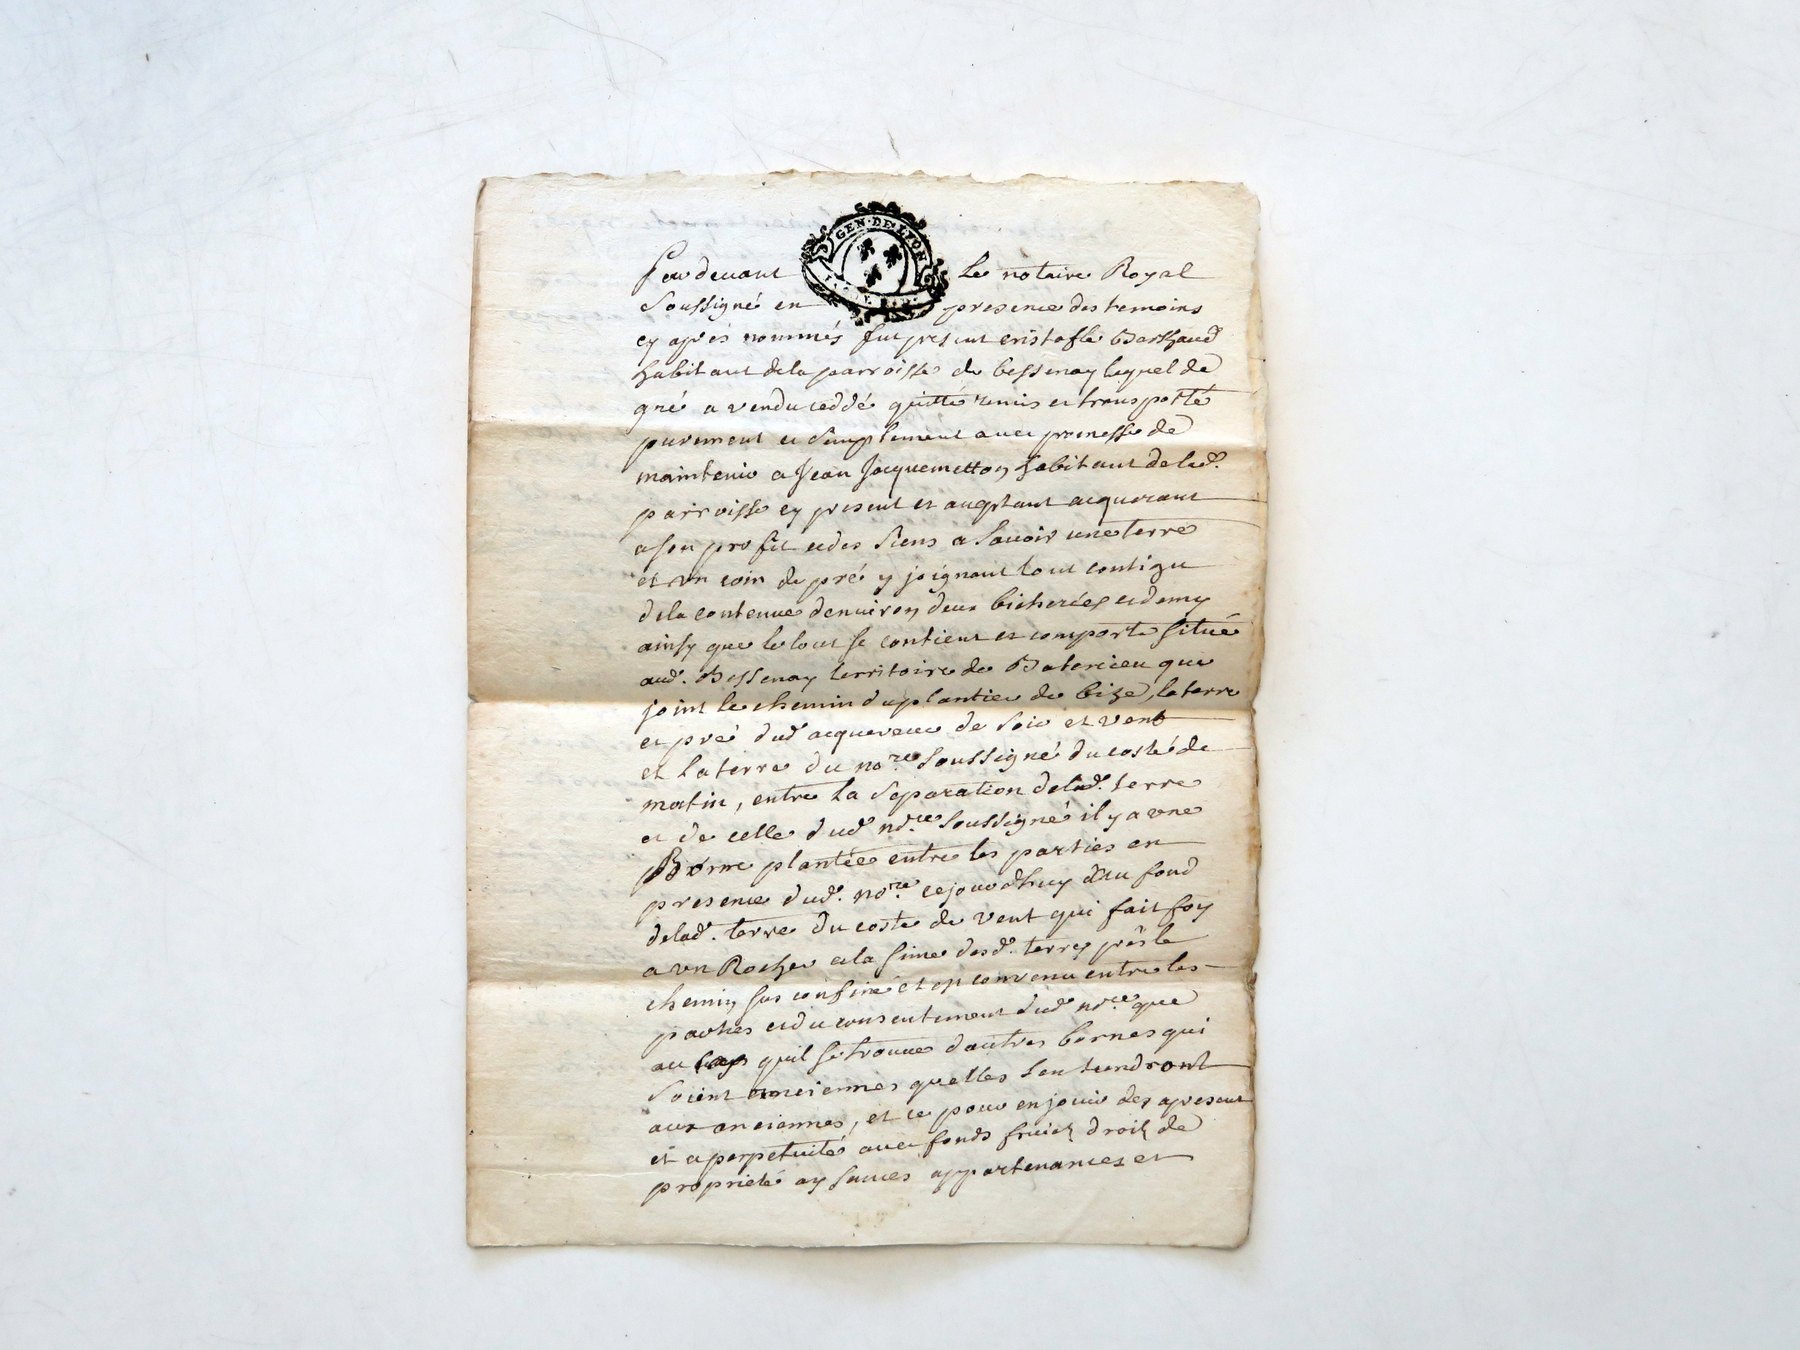 GEN·DE·LYON
Par devant Le notaire Royal
Soussigné en presence des temoins
cy aprés nommés fut present cristofle Barthaud
habitant dela parroisse de bessenay lequel de
gré a vendu ceddé quitté remis et transporté
purement et simplement avec promesse de
maintenir a Jean Jacquemetton habitant delad.
parroisse cy present et acceptant acquerant
a son profit et des siens a Sauoir une terre
et vn coin de pré y joignant tout contigu
dela contenue denuiron deux bicherées et demy
ainsy que le tout se contient et comporte situé
aud. Bessenay territoire de Batericieu qui
joint le chemin du plantier de bize, la terre
et pré dud acquereur de soir et vent
et la terre du no.re soussigné du costé de
matin, entre la Separation delad. terre
et de celle dud no.re soussigné il y a vne
Borne plantée entre les parties en
presence dud. no.re cejourdhuy au fond
delad. terre du costé de vent qui fait foy
a vn Rocher a la sime desd. terres prés le
chemin sus confiné et est convenu entre les
parties et du consentement dud no.re que
au cas quil se trouve dautres bornes qui
soient anciennes quelles sen tiendront
aux anciennes, et ce pour en jouir des apresent
et a perpetuité avec fonds fruicts droits de
proprieté aysances appartenances et